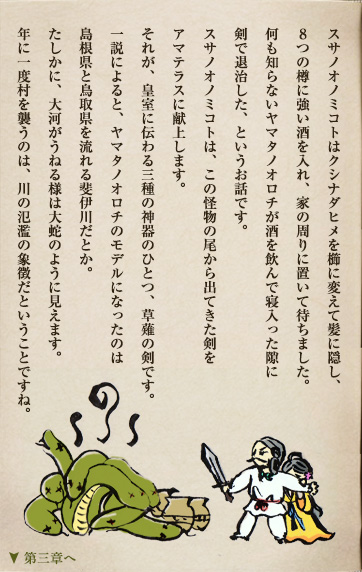 スサノオノミコトはクシナダヒメを櫛に変えて髪に隠し、
8つの樽に強い酒を入れ、家の周りに置いて待ちました。
何も知らないヤマタノオロチが酒を飲んで寝入った隙に
剣で退治した、というお話です。
スサノオノミコトは、この怪物の尾から出てきた剣を
アマテラスに献上します。
それが、皇室に伝わる三種の神器のひとつ、草薙の剣です。
一説によると、ヤマタノオロチのモデルになったのは
島根県と鳥取県を流れる斐伊川だとか。
たしかに、大河がうねる様は大蛇のように見えます。
年に一度村を襲うのは、川の氾濫の象徴だということですね。
▼ 第三章へ